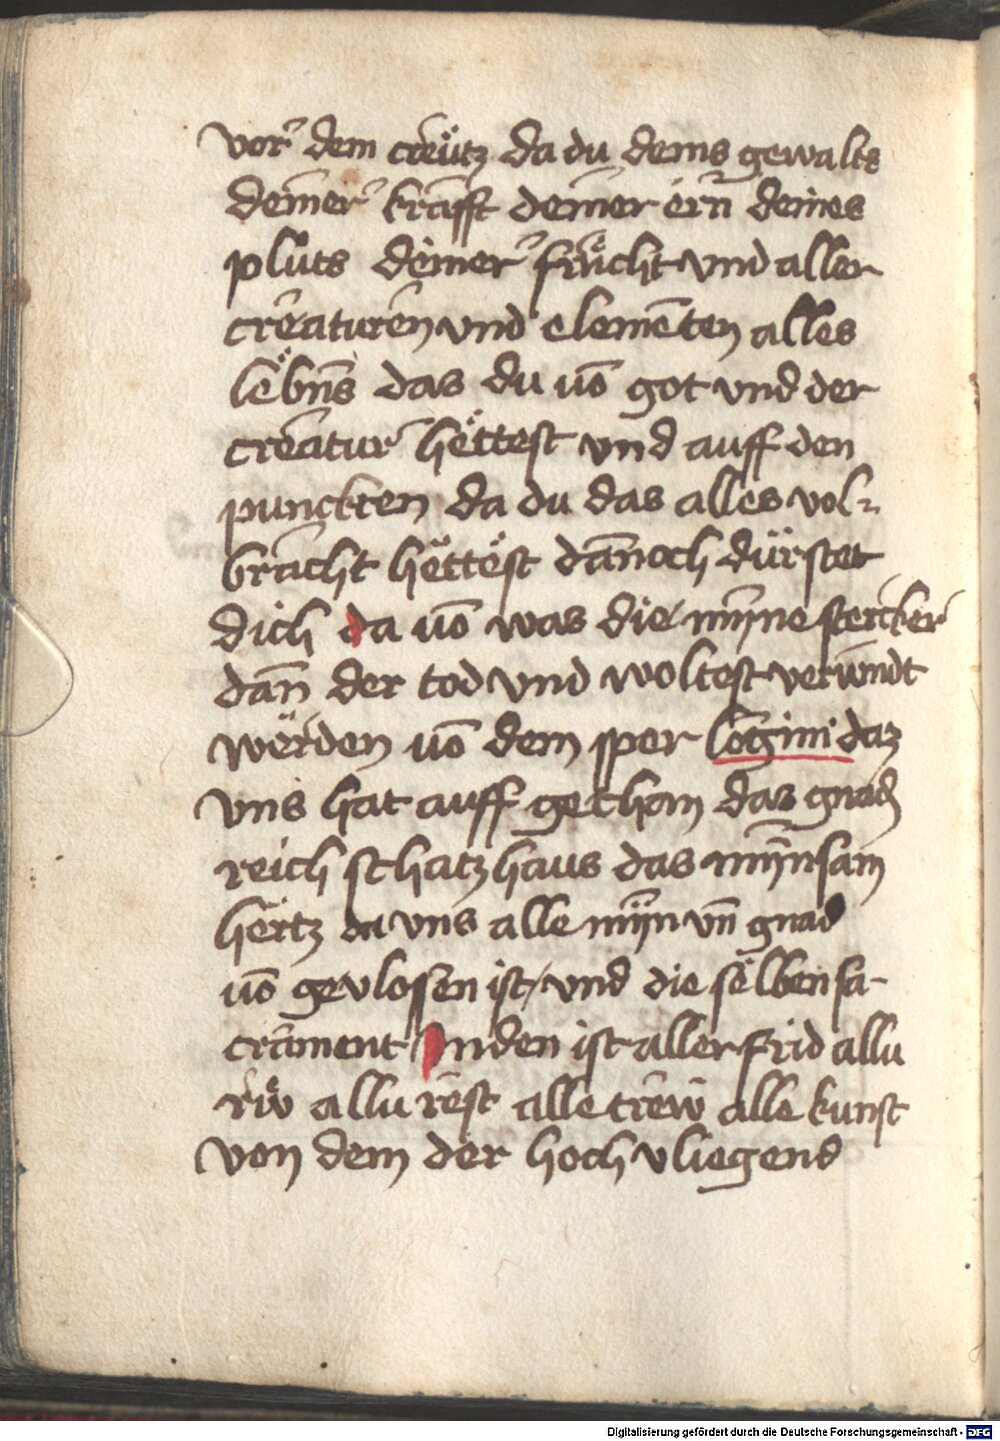 vor dem creütz da du deins gewalts
deiner krafft deiner ern deines
pluts deiner frücht vnd aller
creaturen vnd elemēten alles
lebn̄s das du uō got vnd der
creatur hëttest vnd auff den
punckten da du das alles vol⸗
bracht hëttest dān̄och dürstet
dich da uō was die mÿne stercker
dān der tod vnd woltest verwndt
wërden uō dem sper lōgini daz
vns hat auff gethan daz gnadē
reich schatzhaus das mÿnsam
hertz da vns alle mÿn vn̄ gnad
uō gevlossen ist / vnd die sëlben sa-
crament Jn den ist aller frid allu
rẅ allu rest alle trew alle kunst
von dem der hoch vliegend
Digitalisierung gefördert durch die Deutsche Forschungsgemeinschaft - DFG